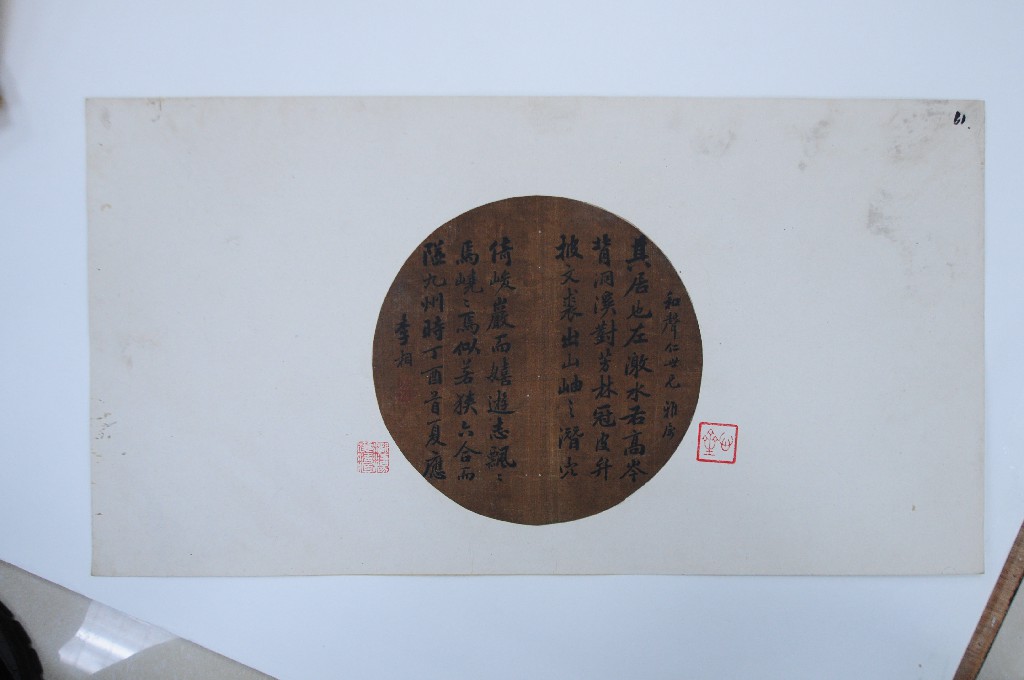 和聲仁世兄雅屬
其居也左激水右高岑
背洞溪對芳林冠皮弁
被文裘出山岫之潛穴
倚峻巖而嬉遊志飄々
焉嶢々焉似若狹六合而
隘九州時丁酉首夏應
李
61.